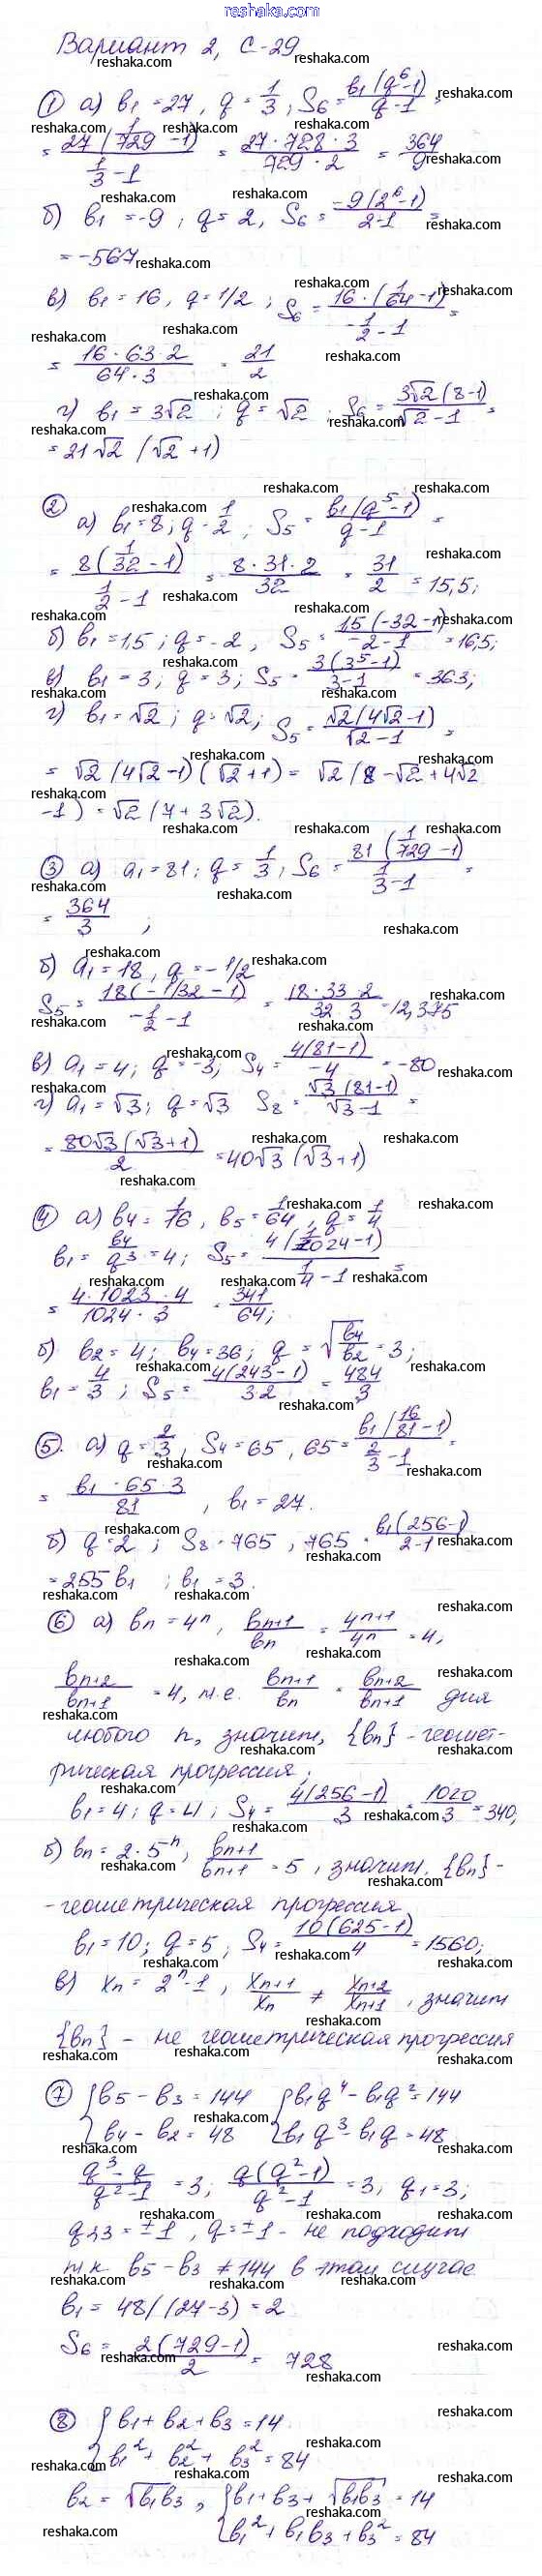 reshak.com
Вариант 2, С-29
① а) b₁ = 27, q = 1/3; S₆ = b₁(q⁶-1)/(q-1) =
= 27(1/729 - 1)/(1/3 - 1) = 27·728·3/(729·2) = 364/9
б) b₁ = -9; q = 2, S₆ = -9(2⁶-1)/(2-1) =
= -567
в) b₁ = 16, q = 1/2; S₆ = 16·(1/64 - 1)/(-1/2 - 1) =
= 16·63 2/(64·3) = 21/2
г) b₁ = 3√2; q = √2; S₆ = 3√2(8-1)/(√2-1) =
= 21√2 (√2+1)
② а) b₁ = 8; q - 1/2; S₅ = b₁(q⁵-1)/(q-1) =
= 8(1/32 - 1)/(1/2 - 1) = 8·31·2/32 = 31/2 = 15,5;
б) b₁ = 1,5; q = -2, S₅ = 15(-32-1)/(-2-1) = 16,5;
в) b₁ = 3; q = 3; S₅ = 3(3⁵-1)/(3-1) = 363;
г) b₁ = √2; q = √2; S₅ = √2(4√2-1)/(√2-1) =
= √2(4√2-1)(√2+1) = √2(8-√2+4√2
-1) = √2(7+3√2).
③ а) a₁ = 81; q = 1/3; S₆ = 81(1/729 - 1)/(1/3 - 1) =
= 364/3 ;
б) a₁ = 18, q = -1/2
S₅ = 18(-1/32 - 1)/(-1/2 - 1) = 18·33·2/(32·3) = 12,375
в) a₁ = 4; q = -3; S₄ = 4(81-1)/-4 = -80
г) a₁ = √3; q = √3 S₈ = √3(81-1)/(√3-1) =
= 80√3(√3+1)/2 = 40√3(√3+1)
④ а) b₄ = 1/16, b₅ = 1/64, q = 1/4
b₁ = b₄/q³ = 4; S₅ = 4(1/1024 - 1)/(1/4 - 1) =
= 4·1023·4/(1024·3) = 341/64;
б) b₂ = 4; b₄ = 36; q = √(b₄/b₂) = 3;
b₁ = 4/3; S₅ = 4(243-1)/(3·2) = 484/3
⑤. а) q = 2/3, S₄ = 65, 65 = b₁(16/81 - 1)/(2/3 - 1) =
= b₁·65·3/81, b₁ = 27.
б) q = 2; S₈ = 765, 765 = b₁(256-1)/(2-1)
= 255 b₁; b₁ = 3.
⑥ а) bₙ = 4ⁿ, bₙ₊₁/bₙ = 4ⁿ⁺¹/4ⁿ = 4,
bₙ₊₂/bₙ₊₁ = 4, т.е. bₙ₊₁/bₙ = bₙ₊₂/bₙ₊₁ для
любого n, значит, {bₙ} - геомет-
рическая прогрессия;
b₁ = 4; q = 4; S₄ = 4(256-1)/3 = 1020/3 = 340;
б) bₙ = 2·5ⁿ, bₙ₊₁/bₙ₊₁ = 5, значит, {bₙ} -
- геометрическая прогрессия
b₁ = 10; q = 5, S₄ = 10(625-1)/4 = 1560;
в) xₙ = 2ⁿ-1, xₙ₊₁/xₙ ≠ xₙ₊₂/xₙ₊₁, значит
{bₙ} - не геометрическая прогрессия
⑦ {b₅ - b₃ = 144 {b₁q⁴ - b₁q² = 144
{b₄ - b₂ = 48 {b₁q³ - b₁q = 48
(q³-q)/(q²-1) = 3; q(q²-1)/(q²-1) = 3, q₁ = 3;
q₂,₃ = ±1, q = ±1 - не подходит
т.к. b₅ - b₃ ≠ 144 в этом случае
b₁ = 48/(27-3) = 2
S₆ = 2(729-1)/2 = 728
⑧ {b₁ + b₂ + b₃ = 14
{b₁² + b₂² + b₃² = 84
b₂ = √b₁b₃, {b₁ + b₃ + √b₁b₃ = 14
{b₁² + b₁b₃ + b₃² = 84